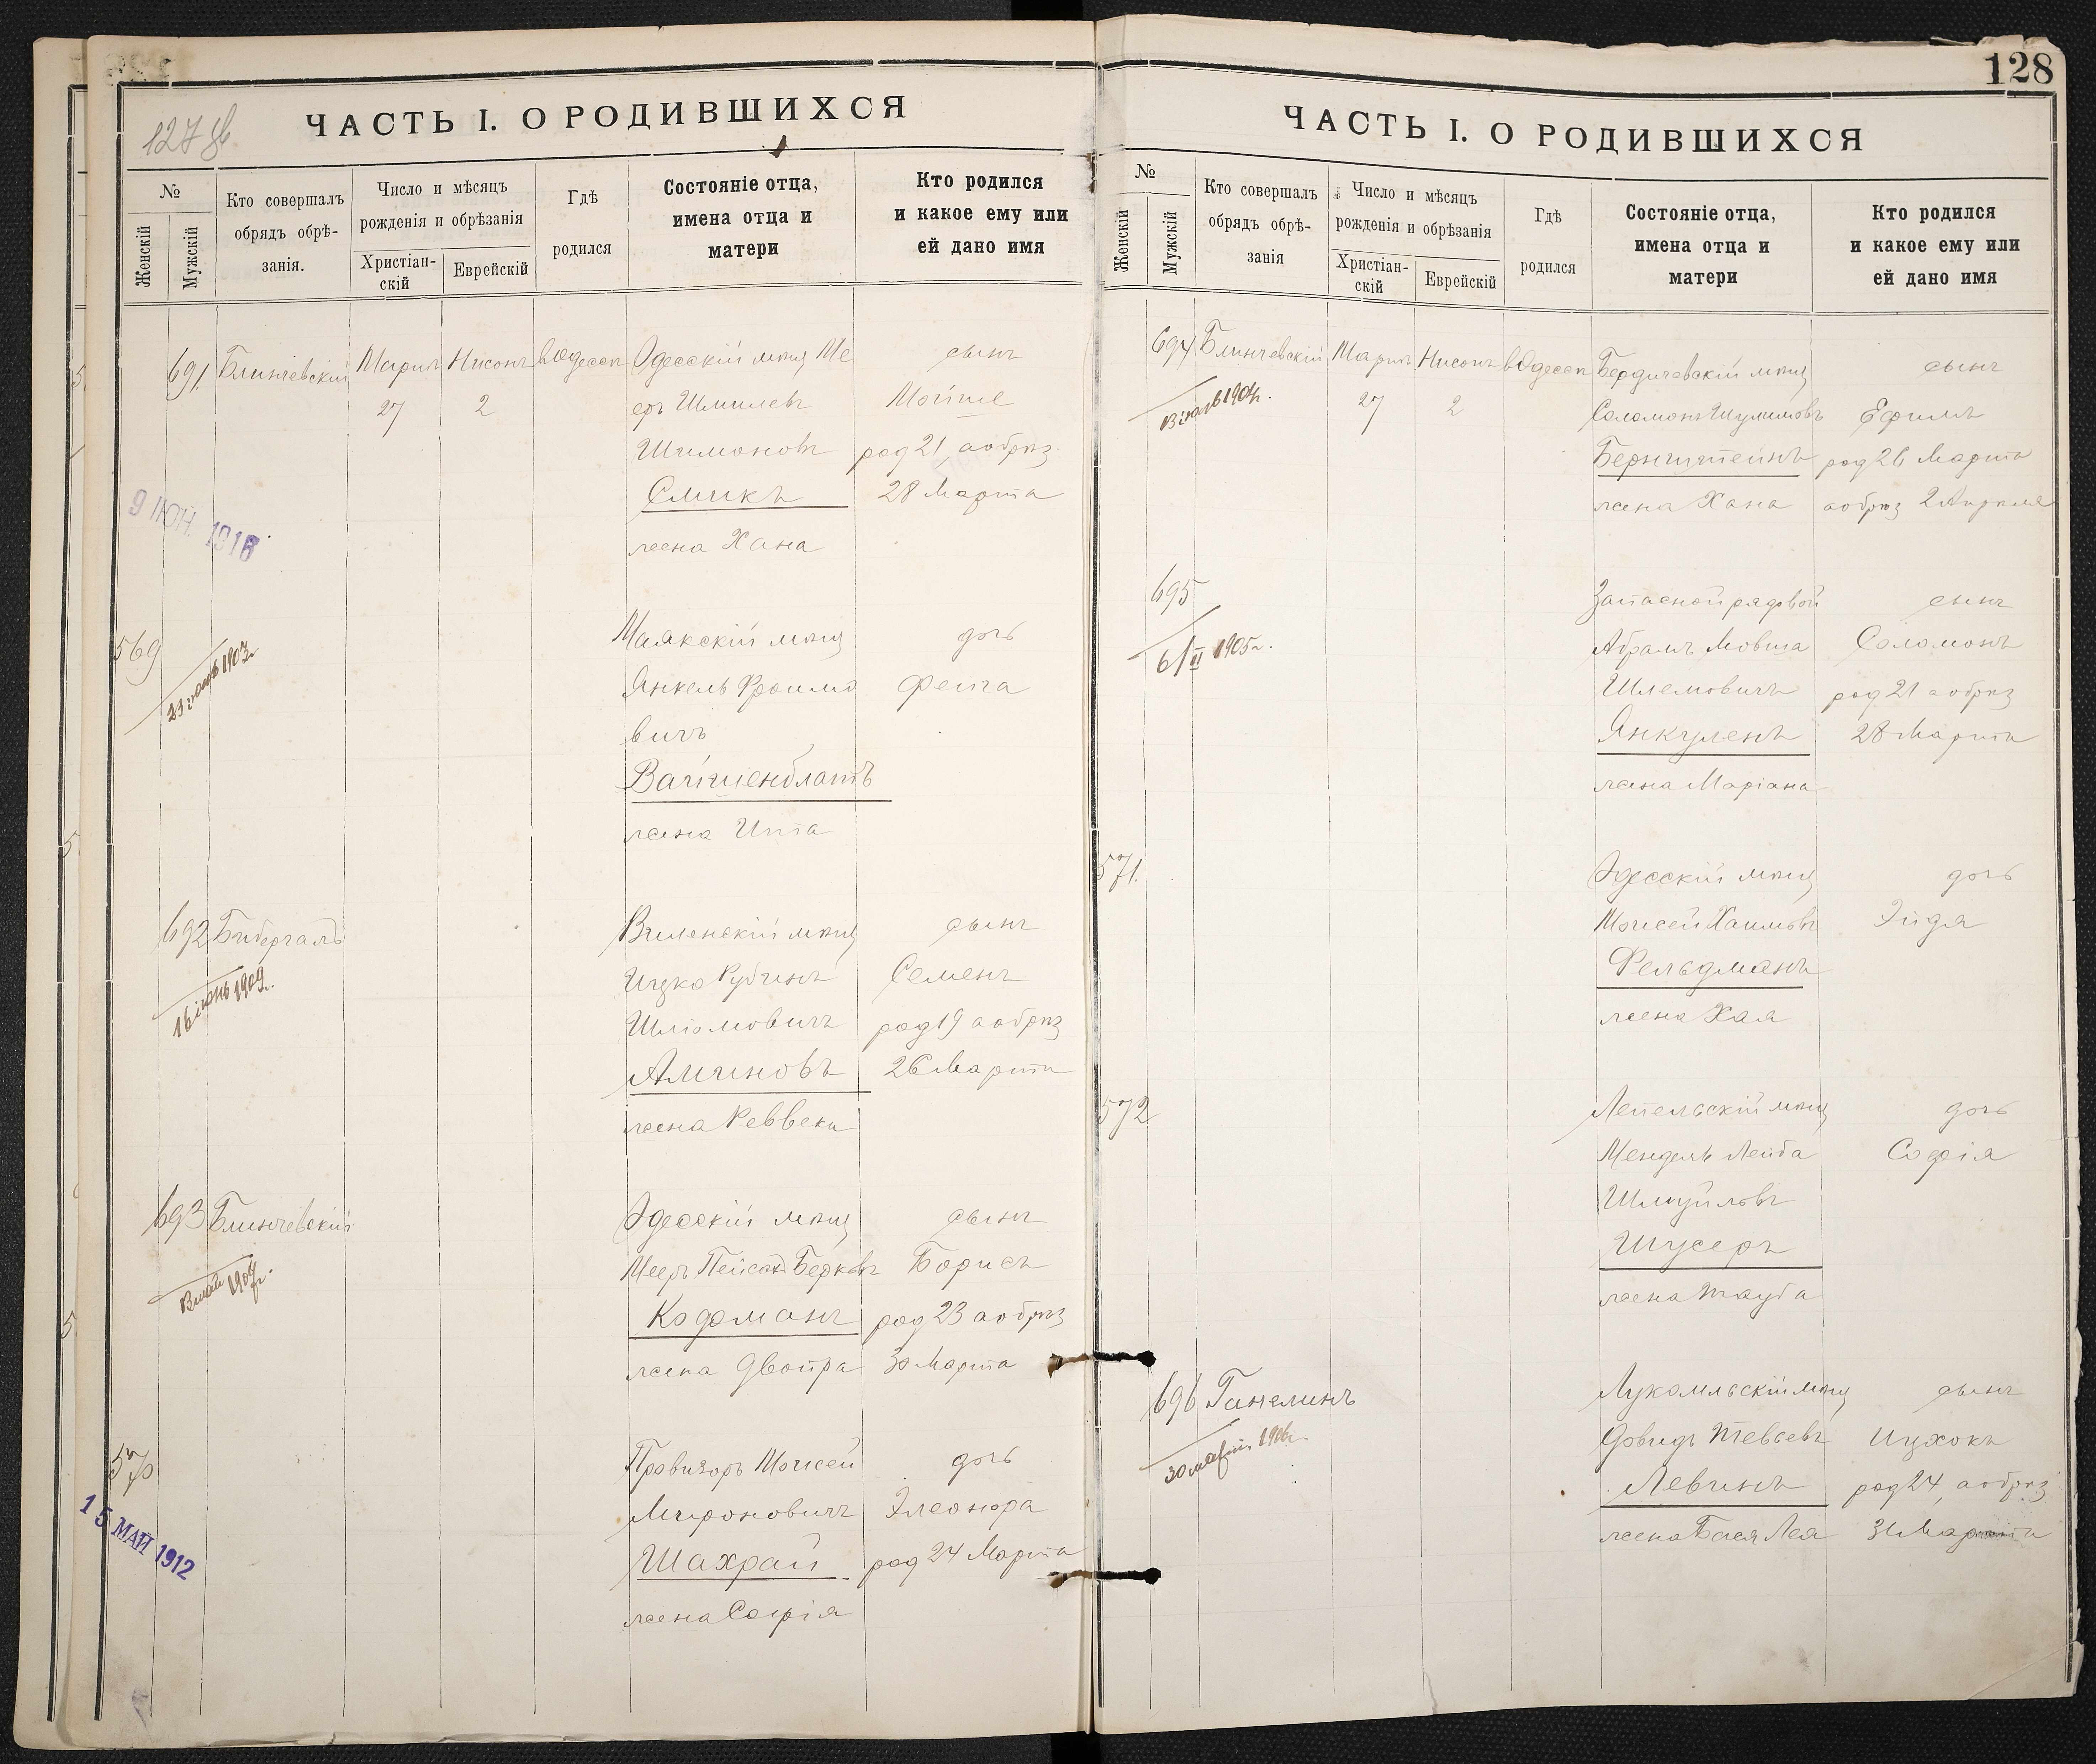 127 об
ЧАСТЬ I. О РОДИВШИХСЯ
№
Женскій
Мужскій
Кто совершалъ
обрядъ обрѣ-
занія.
Число и мѣсяцъ
рожденія и обрѣзанія
Христіан-
скій
Еврейскій
Гдѣ
родился
Состояніе отца,
имена отца и
матери
Кто родился
и какое ему или
ей дано имя
691
Блинчевскій
Мартъ
27
Нисонъ
2
в Одессѣ
Одесскій мѣщ Ме
еръ Шмилевъ
Шимоновъ
Смикъ
жена Хана
сынъ
Мойше
род 21, а обрѣз
28 Марта
9 ІЮН. 1916
569
23 іюнь 1903г
Маякскій мѣщ
Янкель Фроимо
вичъ
Вайшенблатъ
жена Ита
дочь
Фейга
692
Бибергалъ
16 іюнь 1909г.
Виленскій мѣщ
Ицко Рубинъ
Шліомовичъ
Аминовъ
жена Реввека
сынъ
Семенъ
род 19 а обрѣз
26 Марта
693
Блинчевскій
Одесскій мѣщ
Мееръ Пейсахъ Берковъ
Кодоманъ
жена Двойра
сынъ
Борисъ
род 23 а обрѣз
30 Марта
570
15 МАЙ 1912
Провизоръ Моисей
Мироновичъ
Шахрай
жена Софія
дочь
Элеонора
род 24 Марта
128
ЧАСТЬ I. О РОДИВШИХСЯ
№
Женскій
Мужскій
Кто совершалъ
обрядъ обрѣ-
занія
Число и мѣсяцъ
рожденія и обрѣзанія
Христіан-
скій
Еврейскій
Гдѣ
родился
Состояніе отца,
имена отца и
матери
Кто родился
и какое ему или
ей дано имя
694
Блинчевскій
Мартъ
27
Нисонъ
2
в Одессѣ
Бердичевскій мѣщ
Соломонъ Шулимовъ
Бернштейнъ
жена Хана
сынъ
Ефимъ
род 26 Марта
а обрѣз 2 Апрѣля
695
6/II 1905г.
Запасной рядовой
Абрамъ Мовша
Шлемовичъ
Янкуленъ
жена Маріана
сынъ
Соломонъ
род 21 а обрѣз
28 Марта
571.
Одесскій мѣщ
Моисей Хаимовъ
Фельдманъ
жена Хая
дочь
Эйдя
572
Лепельскій мѣщ
Мендель Лейба
Шмуйловъ
Шусеръ
жена Тауба
дочь
Софія
696
Ганелинъ
30 март. 1916г.
Лукомльскій мѣщ
Довидъ Тевьевъ
Левинъ
жена Бася Лея
сынъ
Ицхокъ
род 24, а обрѣз
31 Марта